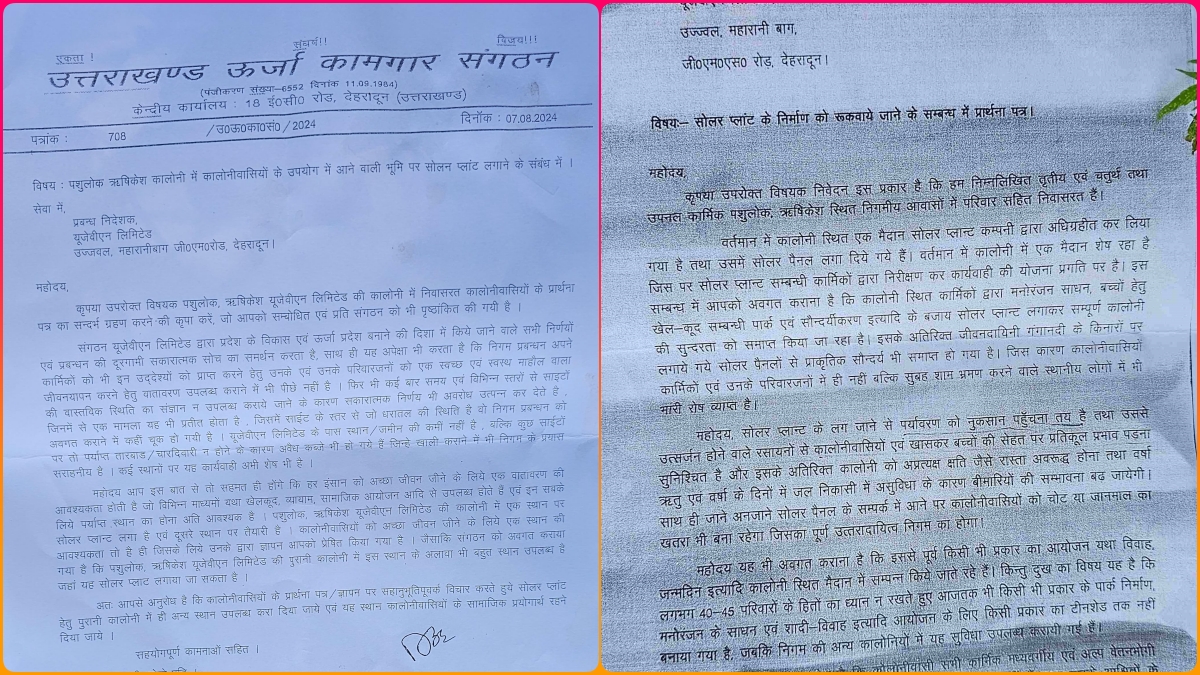 एकता !
संघर्ष!!
विजय!!!
उत्तराखण्ड ऊर्जा कामगार संगठन
(पंजीकरण संख्या–6552 दिनांक 11.09.1984)
केन्दीय कार्यालय : 18 ई0सी0 रोड, देहरादून (उत्तराखण्ड)
पत्रांक : 708 /उ0ऊ0का0सं0/2024 दिनाँक : 07.08.2024
विषय : पशुलोक ऋषिकेश कालोनी में कालोनीवासियों के उपयोग में आने वाली भूमि पर सोलन प्लांट लगाने के संबंध में ।
सेवा में,
प्रबन्ध निदेशक,
यूजेवीएन लिमिटेड
उज्जवल, महारानीबाग जी0एम0रोड, देहरादून।
महोदय,
कृपया उपरोक्त विषयक पशुलोक, ऋषिकेश यूजेवीएन लिमिटेड की कालोनी में निवासरत कालोनीवासियों के प्रार्थना
पत्र का सन्दर्भ ग्रहण करने की कृपा करें, जो आपको सम्बोधित एवं प्रति संगठन को भी पृष्ठांकित की गयी है ।
संगठन यूजेवीएन लिमिटेड द्वारा प्रदेश के विकास एवं ऊर्जा प्रदेश बनाने की दिशा में किये जाने वाले सभी निर्णयों
एवं प्रबन्धन की दूरगामी सकारात्मक सोच का समर्थन करता है, साथ ही यह अपेक्षा भी करता है कि निगम प्रबन्धन अपने
कार्मिकों को भी इन उद्देश्यों को प्राप्त करने हेतु उनके एवं उनके परिवारजनों को एक स्वच्छ एवं स्वस्थ माहौल वाला
जीवनयापन करने हेतु वातावरण उपलब्ध कराने में भी पीछे नहीं है । फिर भी कई बार समय एवं विभिन्न स्तरों से साइटों
की वास्तविक स्थिति का संज्ञान न उपलब्ध कराये जाने के कारण सकारात्मक निर्णय भी अवरोध उत्पन्न कर देते है ,
जिनमें से एक मामला यह भी प्रतीत होता है , जिसमें साईट के स्तर से जो धरातल की स्थिति है वो निगम प्रबन्धन को
अवगत कराने में कहीं चूक हो गयी है । यूजेवीएन लिमिटेड के पास स्थान/जमीन की कमी नहीं है , बल्कि कुछ साइटों
पर तो पर्याप्त तारबाड/चारदिवारी न होने के कारण अवैध कब्जे भी हो गये हैं जिन्हे खाली कराने में भी निगम के प्रयास
सराहनीय है । कई स्थानों पर यह कार्यवाही अभी शेष भी है ।
महोदय आप इस बात से तो सहमत ही होंगे कि हर इंसान को अच्छा जीवन जीने के लिए एक वातावरण की
आवश्यकता होती है जो विभिन्न माध्यमों यथा खेलकूद, व्यायाम, सामाजिक आयोजन आदि से उपलब्ध होते है एवं इन सबके
लिये पर्याप्त स्थान का होना अति आवश्यक है । पशुलोक, ऋषिकेश यूजेवीएन लिमिटेड की कालोनी में एक स्थान पर
सोलर प्लान्ट लगा है एवं दूसरे स्थान पर तैयारी है । कालोनीवासियों को अच्छा जीवन जीने के लिये एक स्थान की
आवश्यकता तो है ही जिसके लिये उनके द्वारा ज्ञापन आपको प्रेषित किया गया है । जैसाकि संगठन को अवगत कराया
गया है कि पशुलोक, ऋषिकेश यूजेवीएन लिमिटेड की पुरानी कालोनी में इस स्थान के अलावा भी बहुत स्थान उपलब्ध है
जहां यह सोलर प्लाट लगाया जा सकता है ।
अतः आपसे अनुरोध है कि कालोनीवासियों के प्रार्थना पत्र/ज्ञापन पर सहानुभूतिपूवर्क विचार करते हुये सोलर प्लांट
हेतु पुरानी कालोनी में ही अन्य स्थान उपलब्ध करा दिया जाये एवं यह स्थान कालोनीवासियों के सामाजिक प्रयोगार्थ रहने
दिया जाये ।
सहयोगपूर्ण कामनाओं सहित ।
उज्ज्वल, महारानी बाग,
जी0एम0एस0 रोड़, देहरादून।
विषयः– सोलर प्लांट के निर्माण को रूकवाये जाने के सम्बन्ध में प्रार्थना पत्र।
महोदय,
कृपया उपरोक्त विषयक निवेदन इस प्रकार है कि हम निम्नलिखित तृतीय एवं चतुर्थ तथा
उपनल कार्मिक पशुलोक, ऋषिकेश स्थित निगमीय आवासों में परिवार सहित निवासरत हैं।
वर्तमान में कालोनी स्थित एक मैदान सोलर प्लान्ट कम्पनी द्वारा अधिग्रहीत कर लिया
गया है तथा उसमें सोलर पैनल लगा दिये गये हैं। वर्तमान में कालोनी में एक मैदान शेष रहा है
जिस पर सोलर प्लान्ट सम्बन्धी कार्मिकों द्वारा निरीक्षण कर कार्यवाही की योजना प्रगति पर है। इस
सम्बन्ध में आपको अवगत कराना है कि कालोनी स्थित कार्मिकों द्वारा मनोरंजन साधन, बच्चों हेतु
खेल–कूद सम्बन्धी पार्क एवं सौन्दर्यीकरण इत्यादि के बजाय सोलर प्लान्ट लगाकर सम्पूर्ण कालोनी
की सुन्दरता को समाप्त किया जा रहा है। इसके अतिरिक्त जीवनदायिनी गंगानदी के किनारों पर
लगाये गये सोलर पैनलों से प्राकृतिक सौन्दर्य भी समाप्त हो गया है। जिस कारण कालोनीवासियों
कार्मिकों एवं उनके परिवारजनों में ही नहीं बल्कि सुबह शाम भ्रमण करने वाले स्थानीय लोगों में भी
भारी रोष व्याप्त है।
महोदय, सोलर प्लान्ट के लग जाने से पर्यावरण को नुकसान पहुँचना तय है तथा उससे
उत्सर्जन होने वाले रसायनों से कालोनीवासियों एवं खासकर बच्चों की सेहत पर प्रतिकूल प्रभाव पड़ना
सुनिश्चित है और इसके अतिरिक्त कालोनी को अप्रत्यक्ष क्षति जैसे रास्ता अवरूद्ध होना तथा वर्षा
ऋतु एवं वर्षा के दिनों में जल निकासी में असुविधा के कारण बीमारियों की सम्भावना बढ जायेगी।
साथ ही जाने अनजाने सोलर पैनल के सम्पर्क में आने पर कालोनीवासियों को चोट या जानमाल का
खतरा भी बना रहेगा जिसका पूर्ण उत्तरादायित्व निगम का होगा।
महोदय यह भी अवगत कराना है कि इससे पूर्व किसी भी प्रकार का आयोजन यथा विवाह,
जन्मदिन इत्यादि कालोनी स्थित मैदान में सम्पन्न किये जाते रहे हैं। किन्तु दुख का विषय यह है कि
लगभग 40–45 परिवारों के हितों का ध्यान न रखते हुए आजतक भी किसी भी प्रकार के पार्क निर्माण,
मनोरंजन के साधन एवं शादी–विवाह इत्यादि आयोजन के लिए किसी प्रकार का टीनशैड तक नहीं
बनाया गया है, जबकि निगम की अन्य कालोनियों में यह सुविधा उपलब्ध करायी गई हैं।
कालोनीवासी सभी कार्मिक मध्यवर्गीय एवं अल्प वेतनभोगी